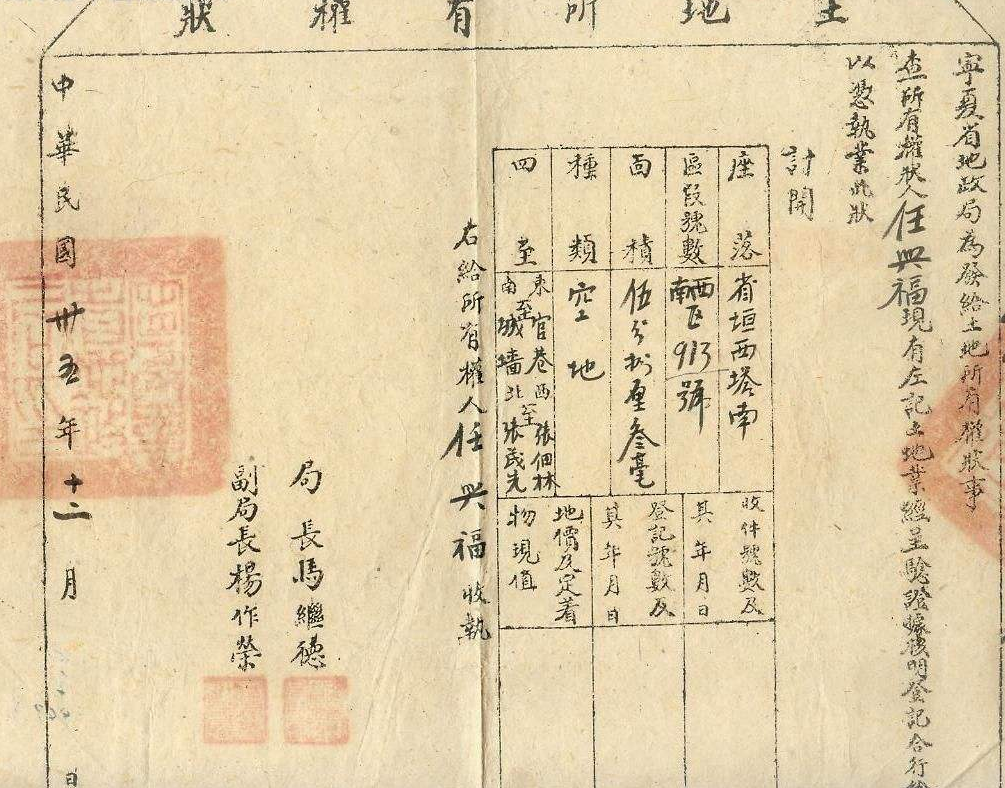 土地所有權狀
寧夏省地政局為發給土地所有權狀事
查所有權狀人任興福現有左記土地業經呈驗證據核明登記合行給
以憑執業此狀
計開
座落 省垣西塔南
區段號數 西南區913號
面積 伍分捌厘叁毫
種類 空地
四至 東至官巷 西至張佃林 南至城墻 北至張茂先
收件號數及其年月日
登記號數及其年月日
地價及定着物現值
右給所有權人任興福收執
局長馬繼德
副局長楊作榮
中華民國卅五年十二月 日